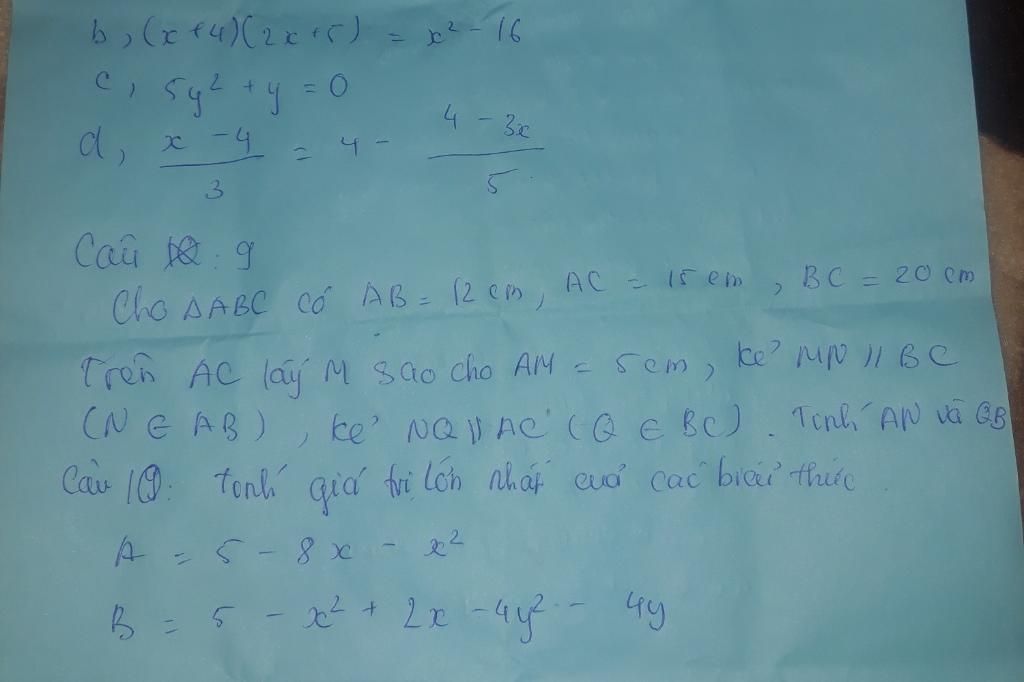 b, (x+4)(2x+5) = x² - 16
c, 5y² + y = 0
d, \frac{x - 4}{3} = 4 - \frac{4 - 3x}{5}
Câu : 9
Cho ΔABC có AB = 12 cm, AC = 15 cm, BC = 20 cm
Trên AC lấy M sao cho AM = 5 cm, kẻ MN // BC
(N ∈ AB), kẻ NQ // AC (Q ∈ BC). Tính AN và QB
Câu 10: Tính giá trị lớn nhất của các biểu thức.
A = 5 - 8x - x²
B = 5 - x² + 2x - 4y² - 4y